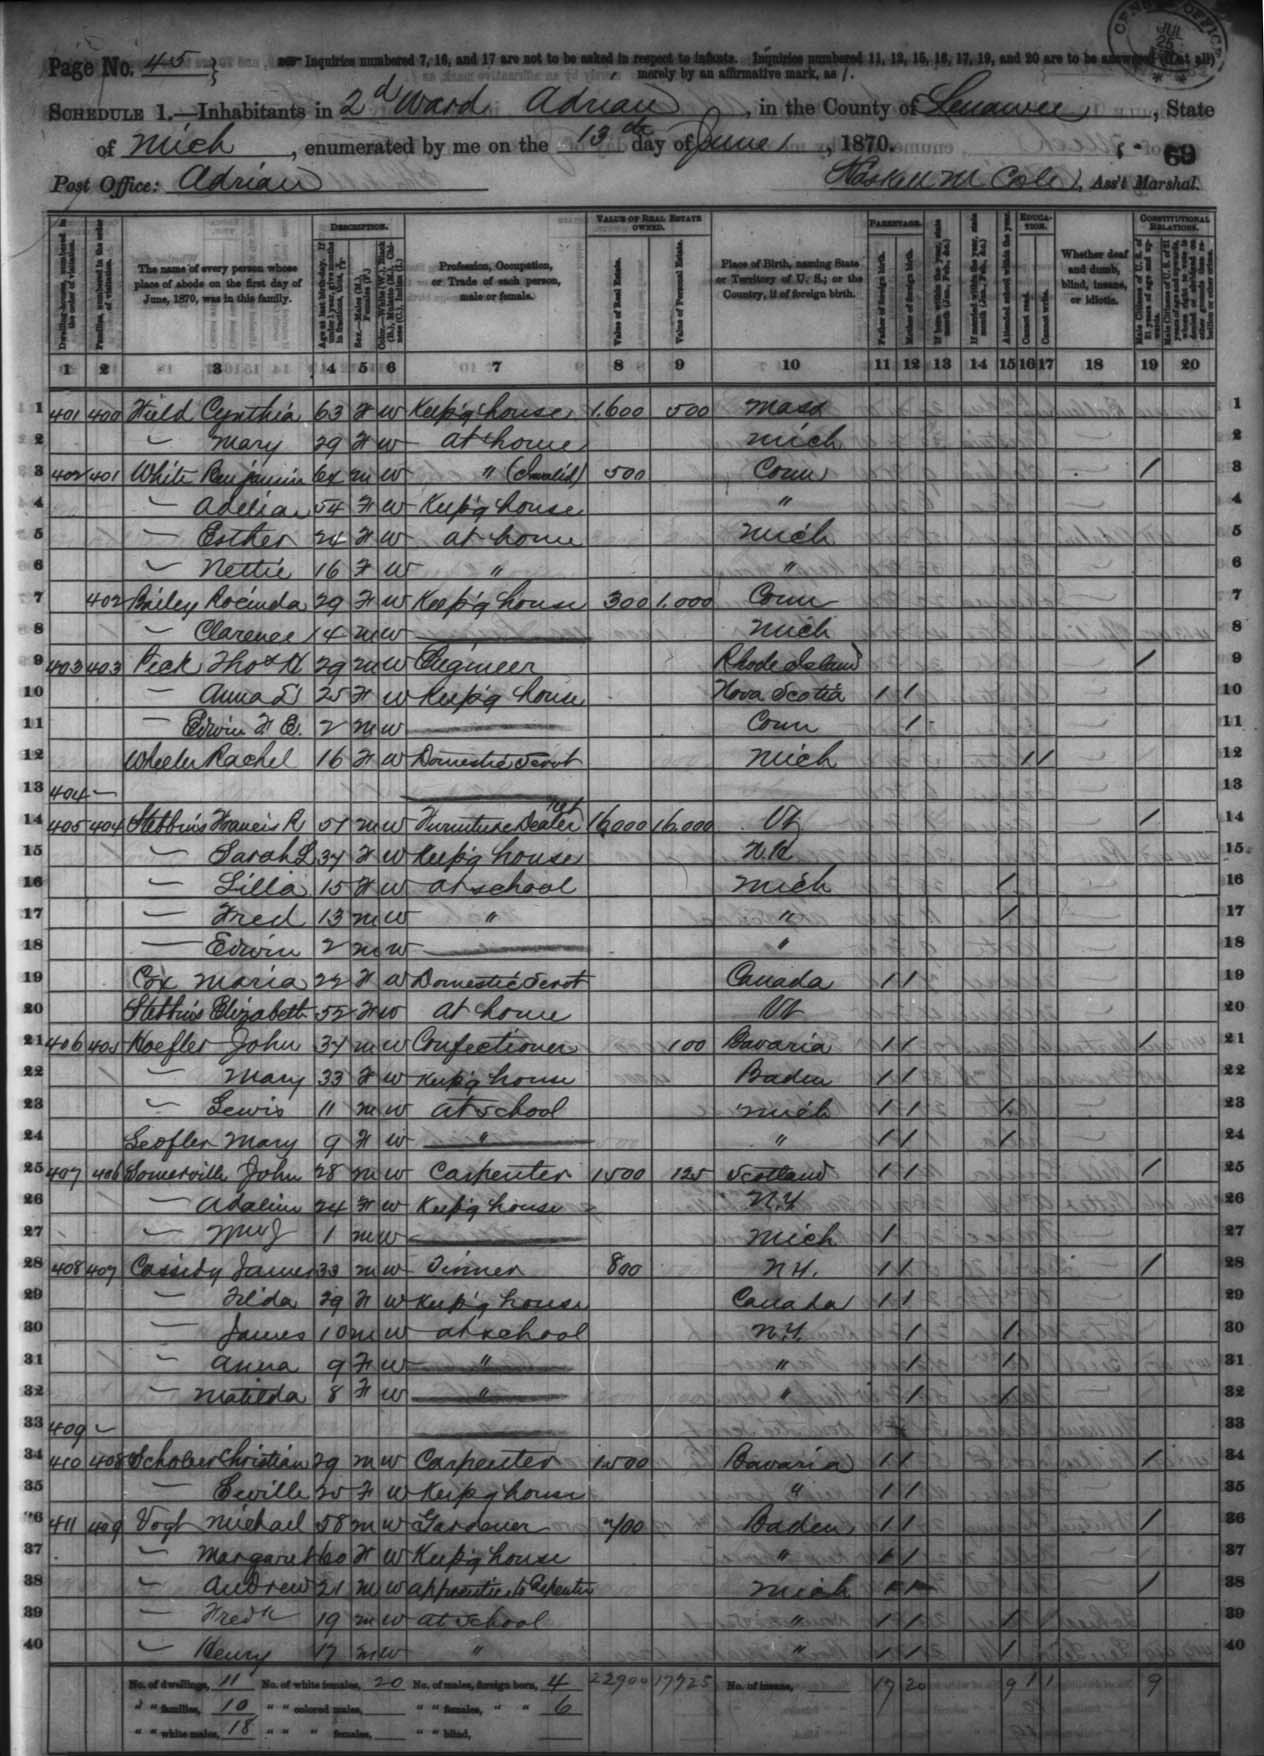 Page No. 45
Inquiries numbered 7, 16, and 17 are not to be asked in respect to infants. Inquiries numbered 11, 12, 15, 16, 17, 19, and 20 are to be answered (if at all)
merely by an affirmative mark, as /.
SCHEDULE 1.—Inhabitants in 2d Ward Adrian, in the County of Lenawee, State
of Mich, enumerated by me on the 13th day of June, 1870.
69
Post Office: Adrian Haskell M Cole, Ass't Marshal.
DESCRIPTION. VALUE OF REAL ESTATE OWNED. PARENTAGE. EDUCATION. CONSTITUTIONAL RELATIONS.
Dwelling-houses, numbered in the order of visitation.
Families, numbered in the order of visitation.
The name of every person whose place of abode on the first day of June, 1870, was in this family.
Profession, Occupation, or Trade of each person, male or female.
Value of Real Estate.
Value of Personal Estate.
Place of Birth, naming State or Territory of U. S.; or the Country, if of foreign birth.
Father of foreign birth.
Mother of foreign birth.
Attended school within the year.
Cannot read.
Cannot write.
Whether deaf and dumb, blind, insane, or idiotic.
1 2 3 4 5 6 7 8 9 10 11 12 13 14 15 16 17 18 19 20
1 401 400 Field Cynthia 63 F W Keep'g house 1,600 500 Mass 1
2 — Mary 29 F W at home Mich 2
3 402 401 White Benjamin 64 M W " (Invalid) 500 Conn / 3
4 — Adelia 54 F W Keep'g house " 4
5 — Esther 24 F W at home Mich 5
6 — Nettie 16 F W " " 6
7 402 Bailey Rocinda 29 F W Keep'g house 300 1,000 Conn 7
8 — Clarence 14 M W Mich 8
9 403 403 Peck Thos H 29 M W Engineer Rhode Island / 9
10 — Anna 25 F W Keep'g house Nova Scotia / / 10
11 — Edwin F E. 2 M W Conn / 11
12 Wheeler Rachel 16 F W Domestic Servt Mich / / 12
13 404 — 13
14 405 404 Stebbins Francis R 51 M W Furniture Dealer 16,000 16,000 Vt / 14
15 — Sarah L 34 F W Keep'g house N.H 15
16 — Lilla 15 F W at school Mich / 16
17 — Fred 13 M W " " / 17
18 — Edwin 2 M W " 18
19 Cox Maria 22 F W Domestic Servt Canada / / 19
20 Stebbins Elizabeth 52 F W at home Vt 20
21 406 405 Hoefler John 34 M W Confectioner 100 Bavaria / / / 21
22 — Mary 33 F W Keep'g house Baden / / 22
23 — Lewis 11 M W at school Mich / / / 23
24 Leofler Mary 9 F W " " / / / 24
25 407 406 Somerville John 28 M W Carpenter 1500 125 Scotland / / / 25
26 — Adaline 24 F W Keep'g house N.Y 26
27 — 1 M W Mich / 27
28 408 407 Cassidy James 33 M W Tinner 800 N.Y. / / / 28
29 — Tilda 29 F W Keep'g house Canada / / 29
30 — James 10 M W at school N.Y. / / 30
31 — Anna 9 F W " " / / 31
32 — Matilda 8 F W " " / / 32
33 409 — 33
34 410 408 Christian 29 M W Carpenter 1,500 Bavaria / / / 34
35 — Seville 25 F W Keep'g house " / / 35
36 411 409 Vogt Michael 58 M W Gardener 700 Baden / / / 36
37 — Margaret 60 F W Keep'g house " / / 37
38 — Andrew 21 M W apprentice to Carpenter Mich / / / 38
39 — Fredk 19 M W at school " / / / 39
40 — Henry 17 M W " " / / / 40
No. of dwellings, 11 No. of white females, 20 No. of males, foreign born, 4 22900 17725 No. of insane, 17 20 9 1 1 9
" " families, 10 " " colored males, " " females, " " 6
" " white males, 18 " " " females, " " blind,